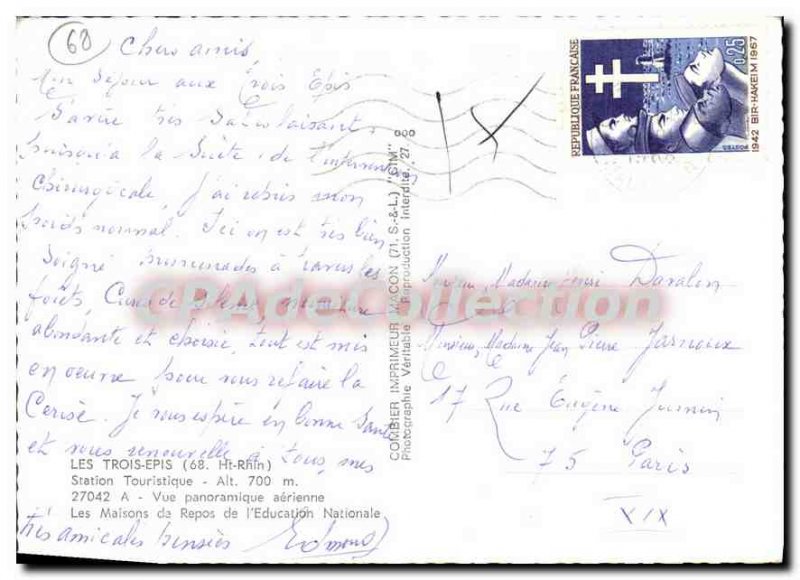 68
Chers amis,
Mon séjour aux Trois Epis
s'avère très satisfaisant,
puisqu'à la suite de l'intervention
chirurgicale, j'ai repris mon
poids normal. Ici on est très bien
soigné promenades à travers les
forêts, Cure de silence, nourriture
abondante et choisie, tout est mis
en oeuvre pour vous refaire la
Cerise. Je vous espère en bonne santé
et vous renouvelle à tous, mes
très amicales pensées Edmond
LES TROIS-EPIS (68. Ht-Rhin)
Station Touristique - Alt. 700 m.
27042 A - Vue panoramique aérienne
Les Maisons de Repos de l'Education Nationale
COMBIER IMPRIMEUR MACON (71. S.-&-L.) "CIM"
Photographie Véritable - Reproduction interdite. 27
REPUBLIQUE FRANÇAISE
0,25
1942 BIR-HAKEIM 1967
Monsieur, Madame Henri Davalon
Monsieur, Madame Jean Pierre Jarnoux
17 Rue Eugène Jumin
75 Paris
XIX
CPAdeCollection